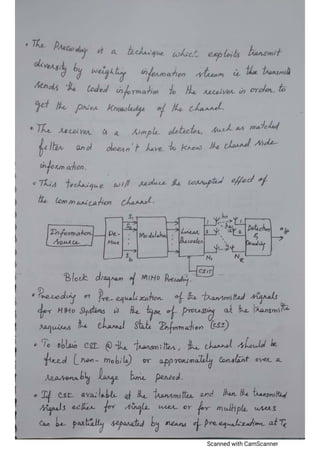 • The Precoding is a technique which exploits transmit
diversity by weighting information stream ie the transmitter
sends the coded information to the receiver in order to
get the prior knowledge of the channel.
• The receiver is a simple detector, such as matched
filter and doesn't have to know the channel side
information.
• This technique will reduce the corrupted effect of
the communication channel.
Information source
De-Mux
S1
S2
Modulation
Linear Precoder
1
2
NT
1
2
NR
Detection & Decoding
o/p
CSIT
Block diagram of MIMO Precoding.
• Precoding or Pre-equalization of the transmitted signals
for MIMO systems is the type of processing at the transmitter
requires the channel State Information (CSI)
• To obtain CSI @ the transmitter, the channel should be
fixed (non-mobile) or approximately constant over a
reasonably large time period.
• If CSI available at the transmitter and then the transmitted
signals either for single user or for multiple users
can be partially separated by means of pre equalization at Tx
Scanned with CamScanner